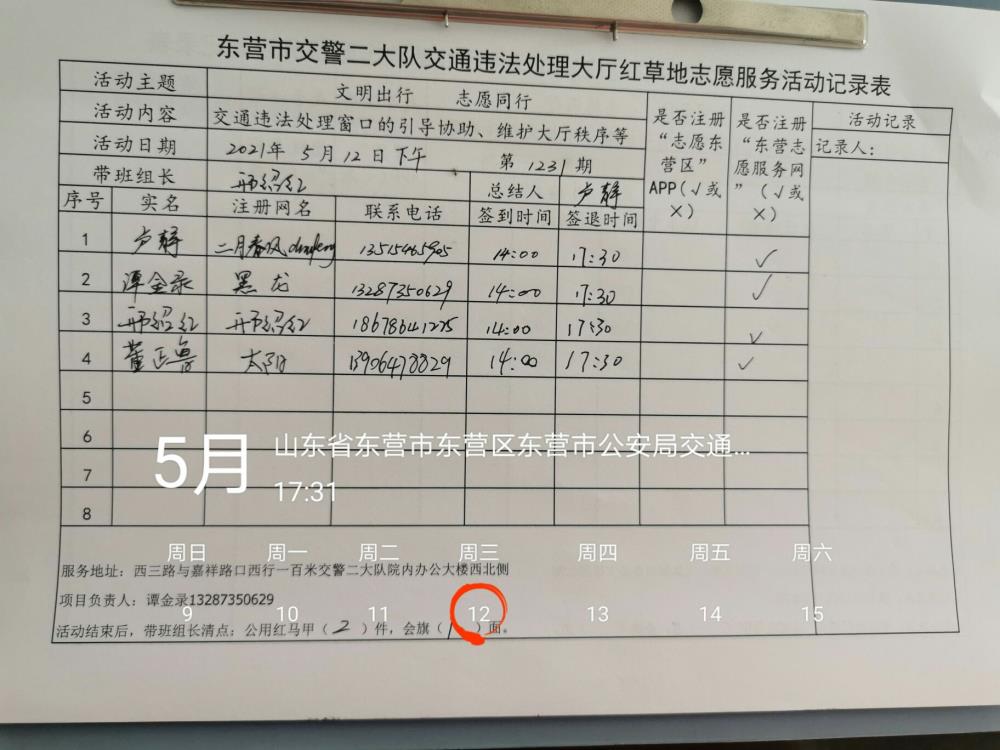 东营市交警二大队交通违法处理大厅红草地志愿服务活动记录表
活动主题 文明出行 志愿同行 是否注册“志愿东营区”APP(√或×) 是否注册“东营志愿服务网”(√或×) 活动记录
活动内容 交通违法处理窗口的引导协助、维护大厅秩序等 记录人：
活动日期 2021年 5月12日下午 第1231期
带班组长 邢绍红 总结人 卢静
序号 实名 注册网名 联系电话 签到时间 签退时间
1 卢静 二月春风 13515465905 14:00 17:30 √
2 谭金录 黑龙 13287350629 14:00 17:30 √
3 邢绍红 邢绍红 18678641275 14:00 17:30 √
4 董正鲁 太阳 13906478829 14:00 17:30 √
5
6
7
8
5月 山东省东营市东营区东营市公安局交通...
17:31
周日 周一 周二 周三 周四 周五 周六
服务地址：西三路与嘉祥路口西行一百米交警二大队院内办公大楼西北侧
项目负责人：谭金录13287350629
9 10 11 12 13 14 15
活动结束后，带班组长清点：公用红马甲（2）件，会旗（1）面。